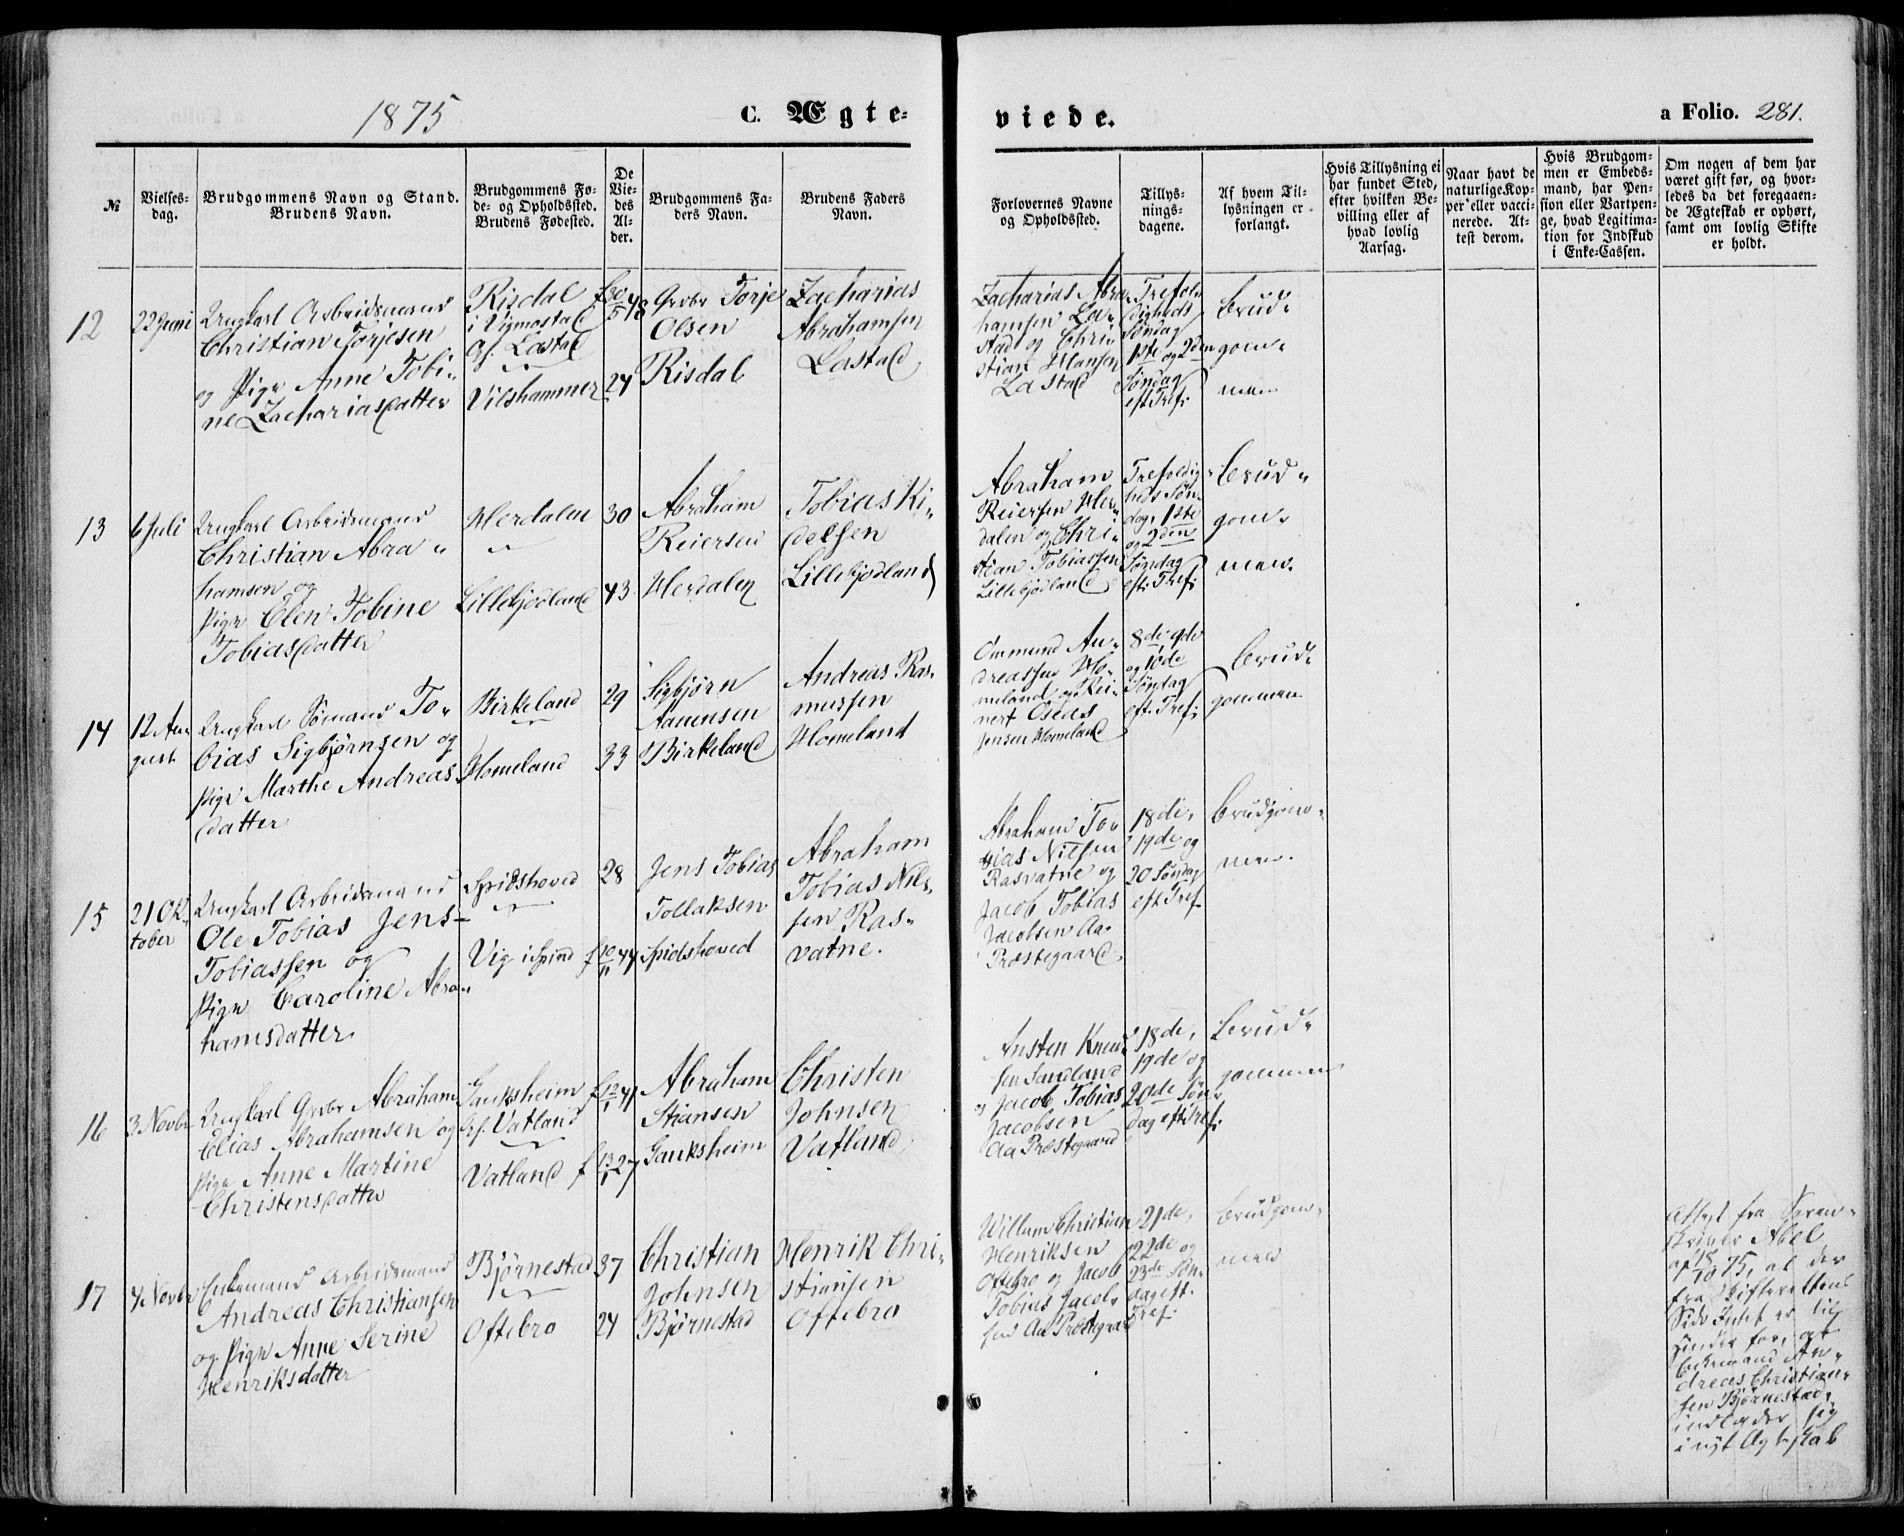 1875
C. Ægte-
viede.
a Folio. 281.
№
Vielses-
dag.
Brudgommens Navn og Stand.
Brudens Navn.
Brudgommens Fø-
de- og Opholdssted.
Brudens Fødested.
De
Vie-
des
Al-
der.
Brudgommens Fa-
ders Navn.
Brudens Faders
Navn.
Forlovernes Navne
og Opholdssted.
Tillys-
nings-
dagene.
Af hvem Til-
lysningen er
forlangt.
Hvis Tillysning ei
har fundet Sted,
efter hvilken Be-
villing eller af
hvad lovlig
Aarsag.
Naar havt de
naturlige Kop-
per eller vacci-
nerede. At-
test derom.
Hvis Brudgom-
men er Embeds-
mand, har Pen-
sion eller Vartpen-
ge, hvad Legitima-
tion for Indskud
i Enke-Cassen.
Om nogen af dem har
været gift før, og hvor-
ledes da det foregaaen-
de Ægteskab er ophørt,
samt om lovlig Skifte
er holdt.
12
22 Juni
Ungkarl Arbeidsmand
Christian Torjesen
og Pige Anne Tobi-
ne Zachariasdatter
Risdal
i Vigmostad
Of. Lastad
Vilshammer
f 30/5 48
24
Grdbr Torje
Olsen
Risdal
Zacharias
Abrahamsen
Lastad
Zacharias Abra-
hamsen La-
stad og Chri-
stian Hansen
Lastad
Trefol-
digheds
Søndag
1ste og 2den
Søndag
eft Tref:
Brud-
gom-
men
13
6 Juli
Ungkarl Arbeidsmand
Christian Abra-
hamsen og
Pige Elen Tobine
Tobiasdatter
Herdalen
Lillekjodland
30
43
Abraham
Reiersen
Herdalen
Tobias Ki-
delsen
Lillekjodland
Abraham
Reiersen Her-
dalen og Chri-
stian Tobiassen
Lillekjodland
Trefoldig-
heds Søn-
dag, 1ste
og 2den
Søndag
eft. Tref:
Brud-
gom-
men.
14
12 Au-
gust
Ungkarl Sømand To-
bias Sigbjørnsen og
Pige Marthe Andreas-
datter
Birkeland
Homeland
29
33
Sigbjørn
Aanensen
Birkeland
Andreas Ras-
mussen
Homeland
Ommund An-
dreassen Ho-
meland og Rei-
nert Oseas
Jensen Homeland
8de, 9de
og 10de
Søndag
eft. Tref:
Brud-
gommen
15
21 Ok-
tober
Ungkarl Arbeidsmand
Ole Tobias Jens-
Tobiassen og
Pige Caroline Abra-
hamsdatter
Spidshoved
Vig i Spind
28
f 10/11 44
Jens Tobias
Tollaksen
Spidshoved
Abraham
Tobias Nil-
sen Ras-
vatne.
Abraham To-
bias Nilsen
Rasvatne og
Jacob Tobias
Jacobsen Aa-
Præstegaard
18de,
19de og
20 Søndag
eft Tref.
Brudgom-
men.
16
3 Novbr
Ungkarl Grdbr Abraham
Elias Abrahamsen og
Pige Anne Martine
Christensdatter
Gauksheim
Of. Vatland
Vatland
f 12/1 41
f 13/1 27
Abraham
Stiansen
Gauksheim
Christen
Johnsen
Vatland
Ansten Knud-
sen Sandland
og Jacob Tobias
Jacobsen
Aa Præstegaard
18de,
19de og
20de Søn-
dag eft Tref:
Brud-
gommen
17
4 Novbr
Enkemand Arbeidsmand
Andreas Christiansen
og Pige Anne Serine
Henriksdatter
Bjørnestad
Oftebro
37
24
Christian
Johnsen
Bjørnestad
Henrik Chri-
stiansen
Oftebro
Willum Christian
Henriksen
Oftebro og Jacob
Tobias Jacob-
sen Aa Præstegaard
21de,
22de og
23de Søn-
dag eft.
Tref:
Brudgom-
men
Attest fra Soren-
skriver Abel
af 18/10 75, at der
fra Skifterettens
Side Intet er til
Hinder for, at
Enkemand An-
dreas Christian-
sen Bjørnestad
indlader sig
i nyt Ægteskab